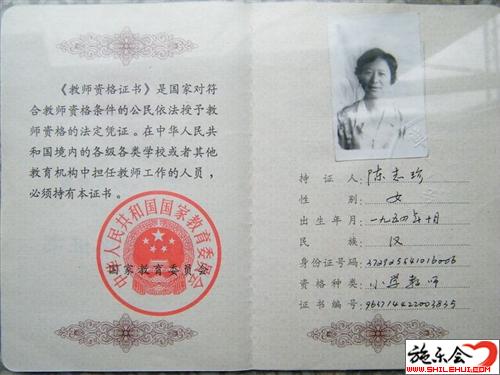 《教师资格证书》是国家对符
合教师资格条件的公民依法授予教
师资格的法定凭证。在中华人民共
和国境内的各级各类学校或者其他
教育机构中担任教师工作的人员，
必须持有本证书。
中华人民共和国国家教育委员会
国家教育委员会
持证人：陈志珍
性别：女
出生年月：一九五四年十月
民族：汉
身份证号码：
资格种类：小学教师
证书编号：963714422003835
施乐会
WWW.SHILEHUI.COM